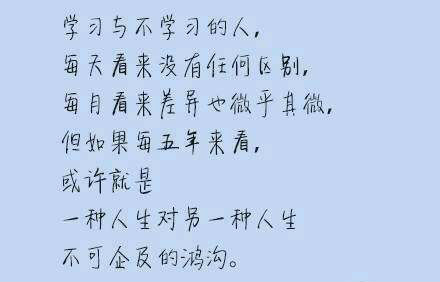 学习与不学习的人,
每天看来没有任何区别,
每月看来差异也微乎其微,
但如果每五年来看,
或许就是
一种人生对另一种人生
不可企及的鸿沟。